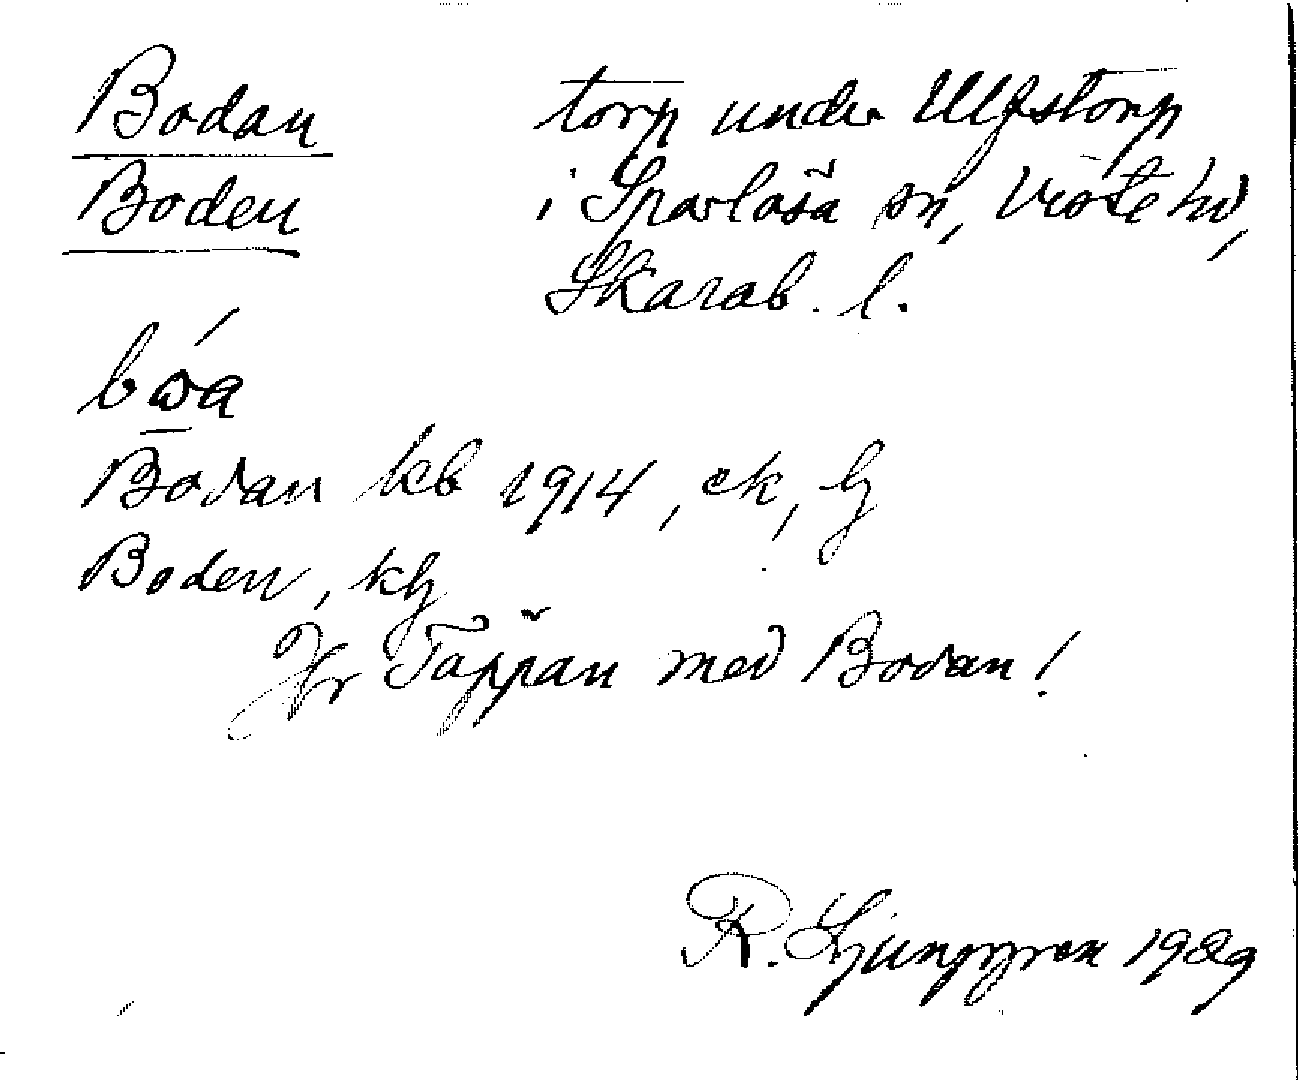 Bodan
Boden
torp under Ulfstorp
i Sparlösa sn, Viste hd,
Skarab. l.
Bodan kb 1914, ek,
Boden,
Jfr Täppan med Bodan!
R. Ljunggren 1929